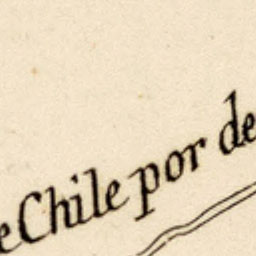 e Chile por de